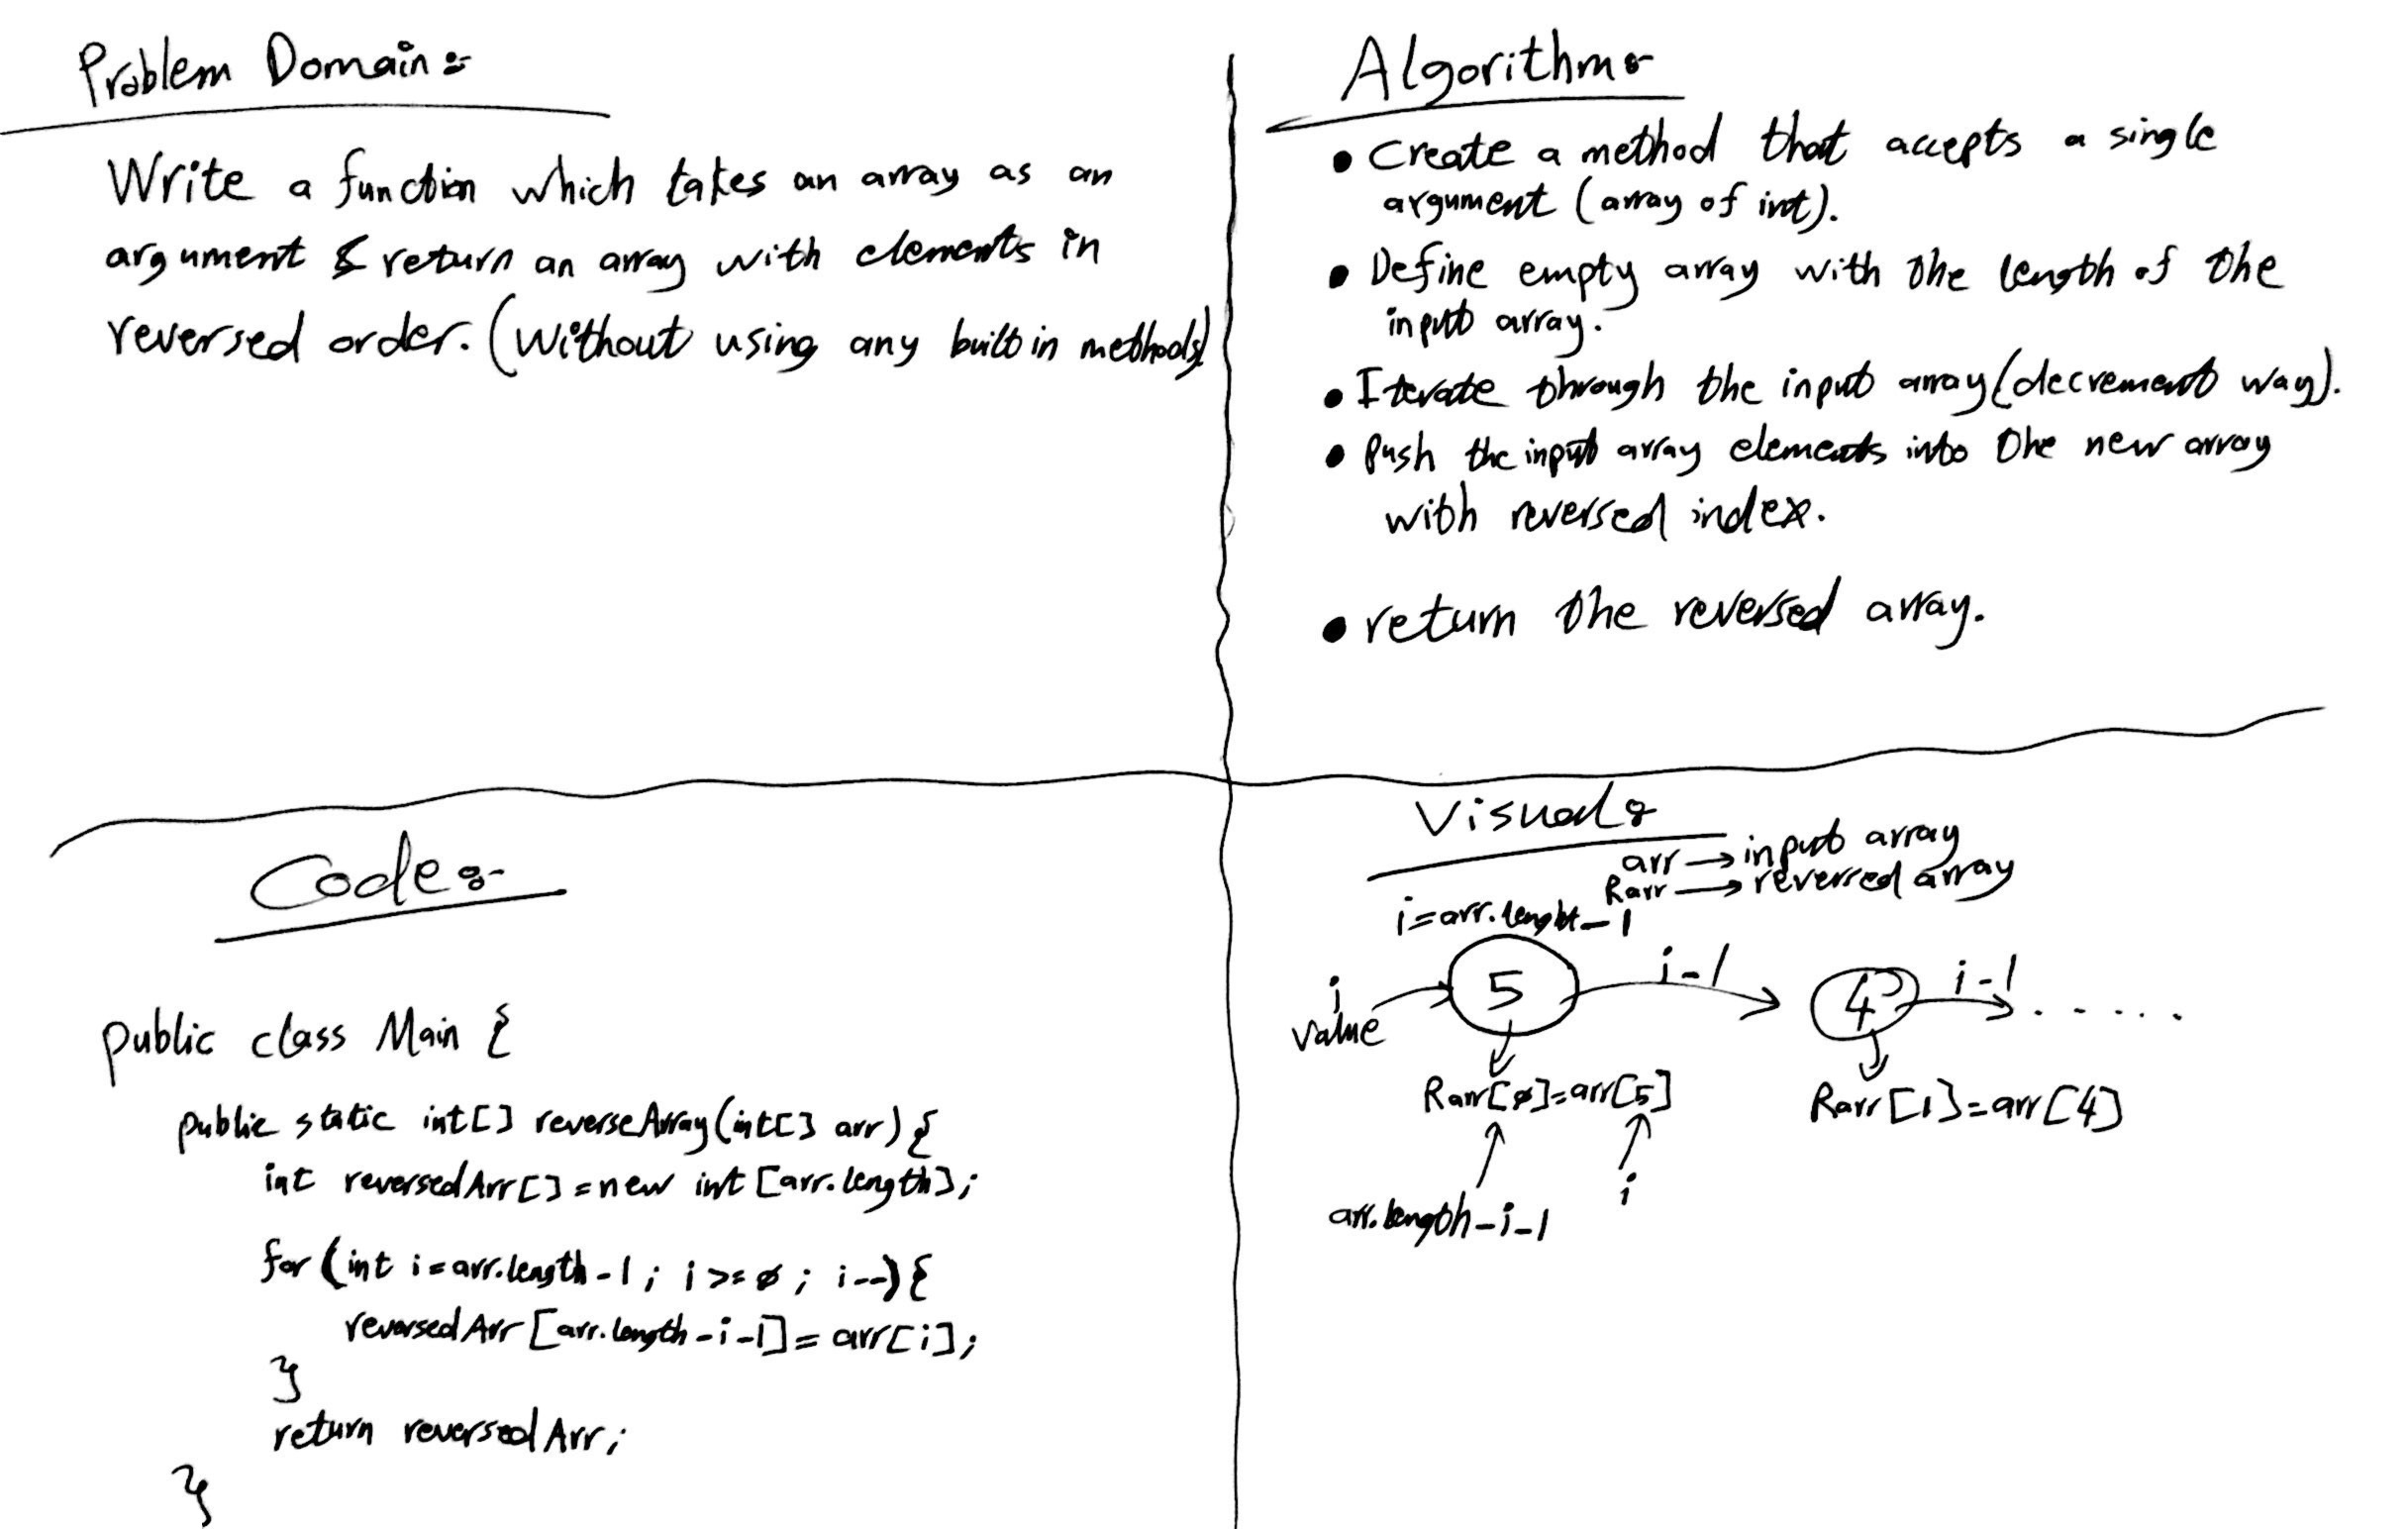 Problem Domain:-
Write a function which takes an array as an
argument & return an array with elements in
reversed order. (Without using any built in methods)
Algorithm:-
• Create a method that accepts a single
argument (array of int).
• Define empty array with the length of the
input array.
• Iterate through the input array (decrement way).
• Push the input array elements into the new array
with reversed index.
• return the reversed array.
Code:-
public class Main {
public static int[] reverseArray(int[] arr) {
int reversedArr[] = new int [arr.length];
for (int i = arr.length - 1; i >= 0; i--) {
reversedArr [arr.length - i - 1] = arr[i];
}
return reversedArr;
}
Visual:-
arr → input array
Rarr → reversed array
i = arr.lenght - 1
i
value
5
i-1
4
i-1
. . . . . .
Rarr[0] = arr[5]
Rarr[1] = arr[4]
arr.length - i - 1
i